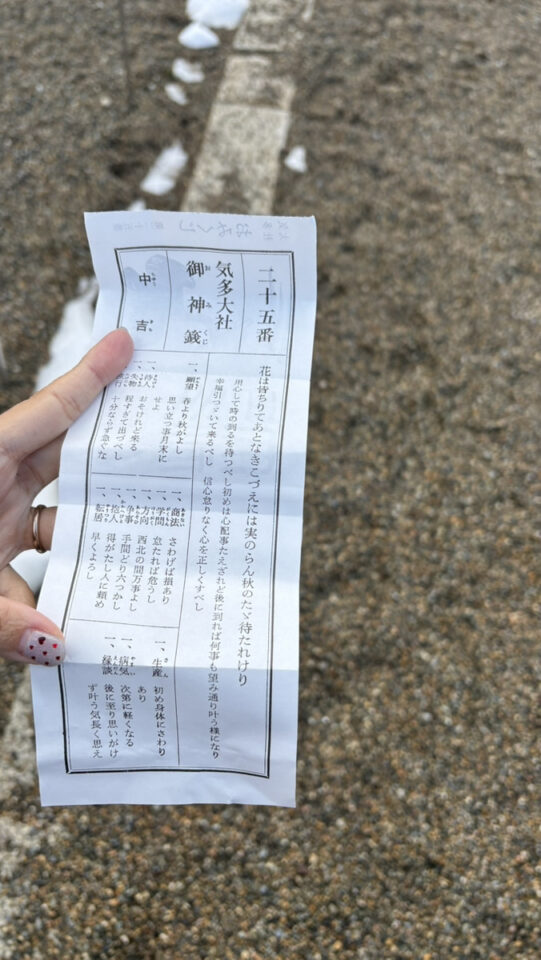 二十五番
気多大社
御神籤
中吉
花は皆ちりてあとなきこづえには実のらん秋のたゞ待たれけり
用心して時の到るを待つべし初めは心配事たえざれど後に到れば何事も望み通り叶う様になり
幸福引つゞいて来るべし 信心怠りなく心を正しくすべし
一、願望 春より秋がよし
思い立つ事月末に
せよ
一、待人 おそけれど来る
一、失物 程すぎて出づべし
十分ならず急ぐな
一、商法 さわげば損あり
一、学問 怠たれば危うし
一、方向 西北の間万事よし
一、争事 手間どり六つかし
一、抱人 得がたし人に頼め
一、転居 早くよろし
一、生産 初め身体にさわり
あり
一、病気 次第に軽くなる
一、縁談 後に至り思いがけ
ず叶う気長く思え